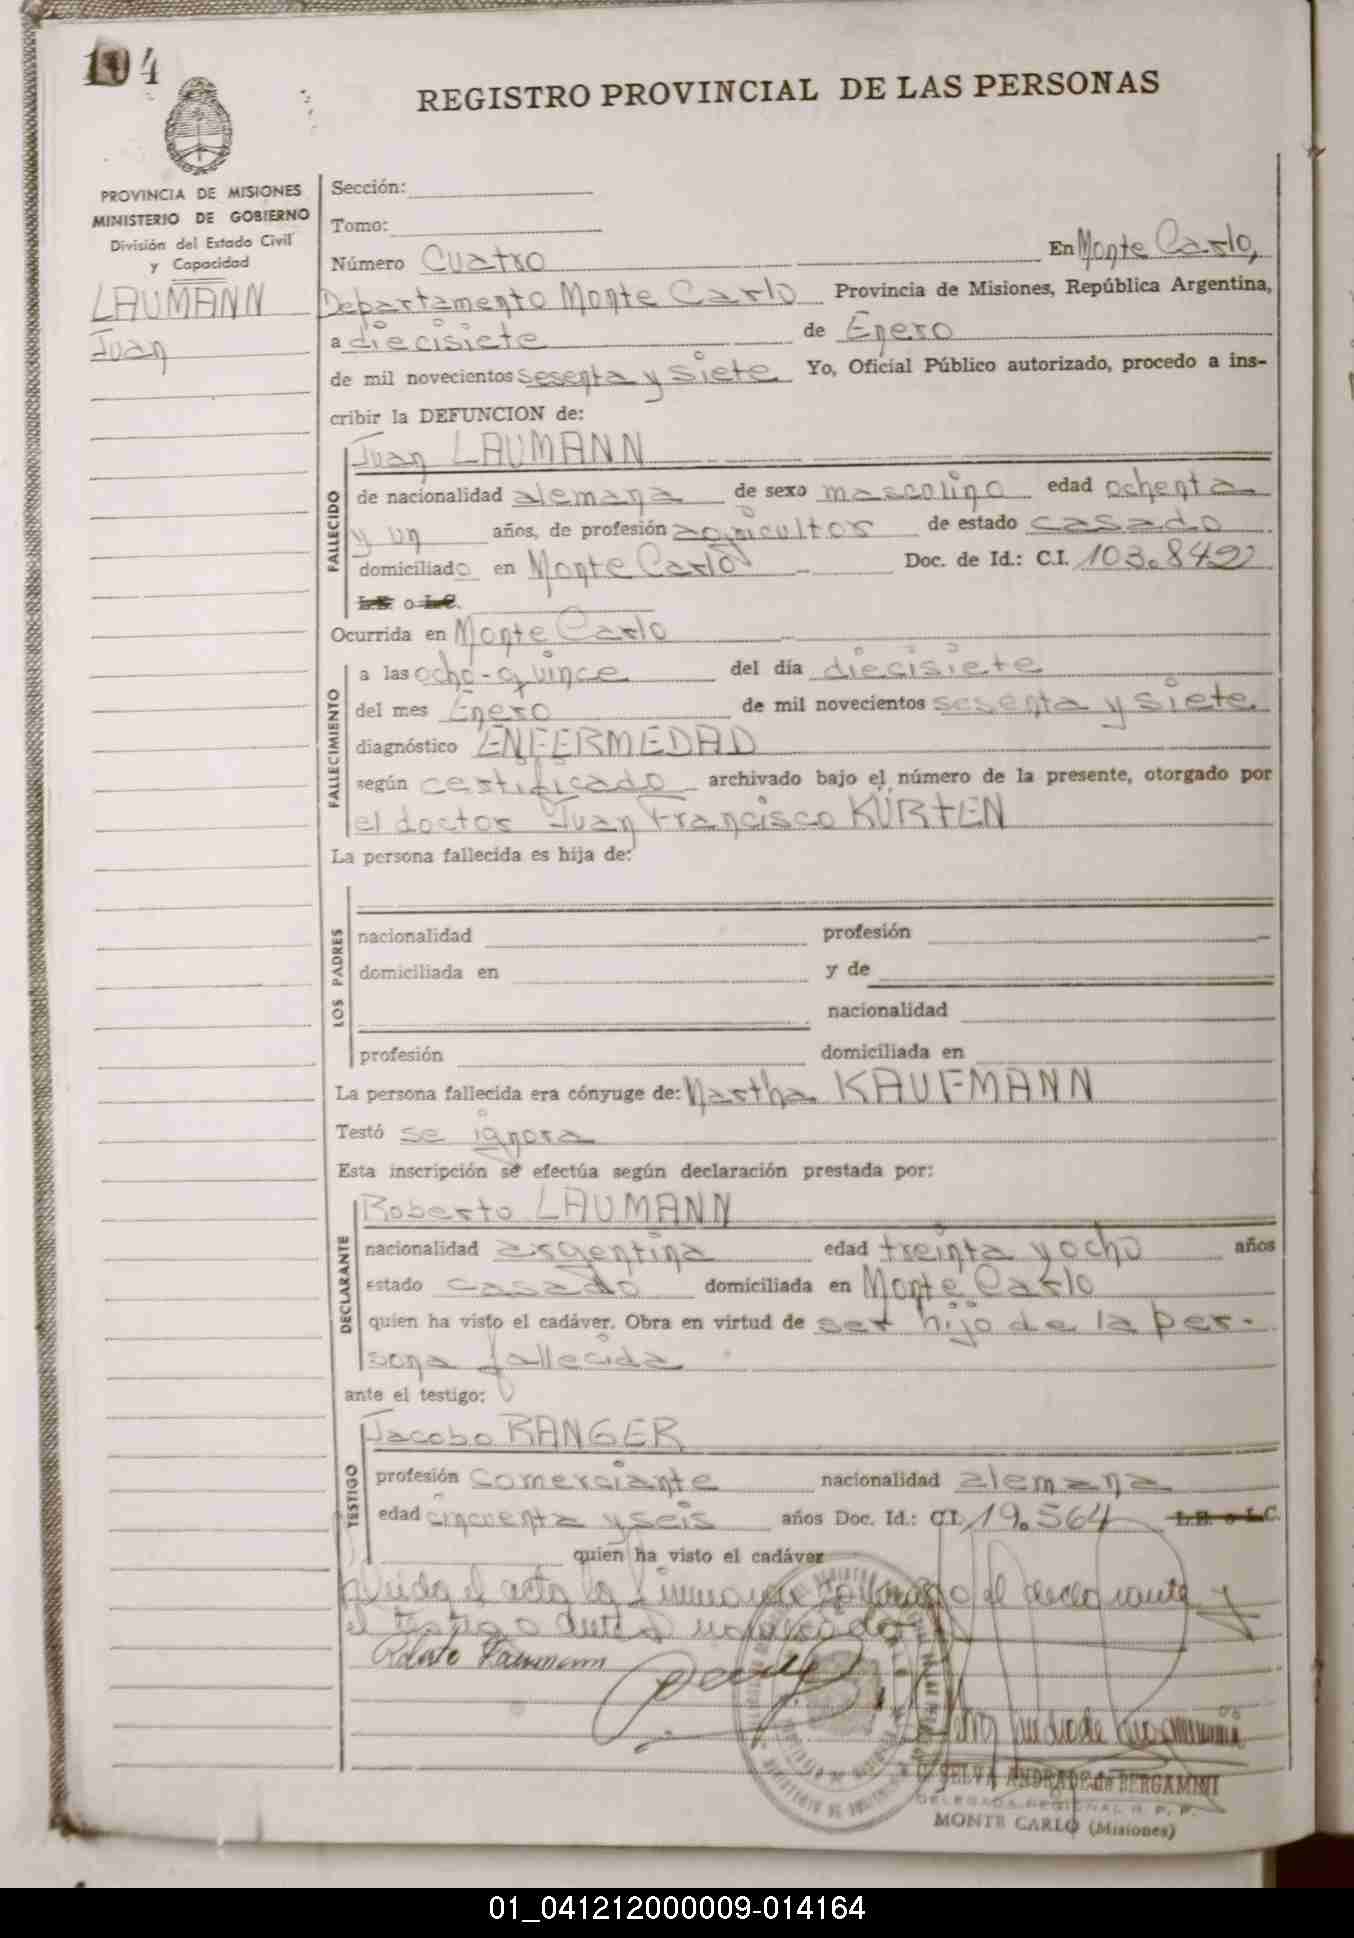 104
REGISTRO PROVINCIAL DE LAS PERSONAS
PROVINCIA DE MISIONES
MINISTERIO DE GOBIERNO
División del Estado Civil
y Capacidad
LAUMANN
Juan
Sección:
Tomo:
Número Cuatro En Monte Carlo,
Departamento Monte Carlo Provincia de Misiones, República Argentina,
a diecisiete de Enero
de mil novecientos sesenta y siete Yo, Oficial Público autorizado, procedo a ins-
cribir la DEFUNCION de:
FALLECIDO
Juan LAUMANN
de nacionalidad alemana de sexo mascolino edad ochenta
y un años, de profesión agricultor de estado casado
domiciliado en Monte Carlo Doc. de Id.: C.I. 103.842
L.E. o L.C.
Ocurrida en Monte Carlo
FALLECIMIENTO
a las ocho-quince del día diecisiete
del mes Enero de mil novecientos sesenta y siete
diagnóstico ENFERMEDAD
según certificado archivado bajo el número de la presente, otorgado por
el doctor Juan Francisco KÜRTEN
La persona fallecida es hija de:
LOS PADRES
nacionalidad profesión
domiciliada en y de
nacionalidad
profesión domiciliada en
La persona fallecida era cónyuge de: Martha KAUFMANN
Testó se ignora
Esta inscripción se efectúa según declaración prestada por:
DECLARANTE
Roberto LAUMANN
nacionalidad argentina edad treinta y ocho años
estado casado domiciliada en Monte Carlo
quien ha visto el cadáver. Obra en virtud de ser hijo de la per-
sona fallecida
ante el testigo:
TESTIGO
Jacobo RANGER
profesión comerciante nacionalidad alemana
edad cincuenta y seis años Doc. Id.: C.I. 19.564 L.E. o L.C.
quien ha visto el cadáver
el acta la el declarante y
el testigo antes
Roberto Laumann
C. SELVA ANDRADE de BERGAMINI
DELEGADA REGIONAL R. P. P.
MONTE CARLO (Misiones)
01_041212000009-014164